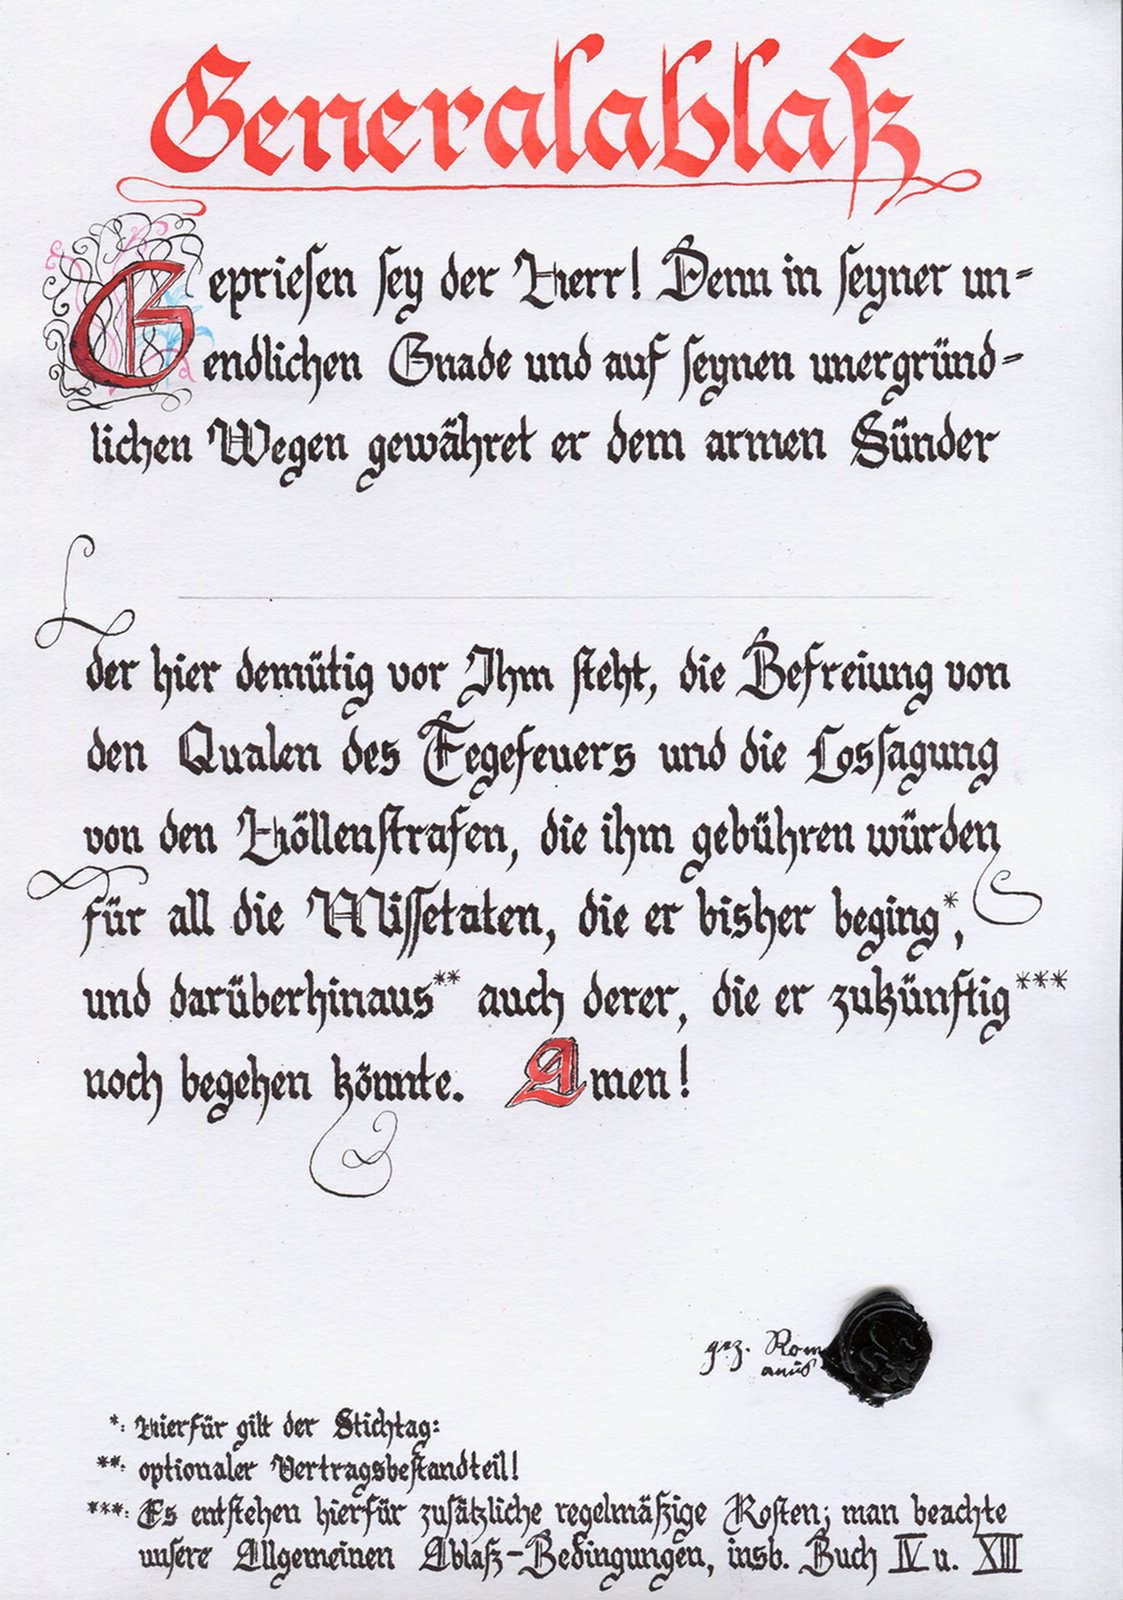 Generalablaß
Gepriesen sey der Herr! Denn in seyner un-
endlichen Gnade und auf seynen unergründ-
lichen Wegen gewähret er dem armen Sünder
der hier demütig vor Ihm steht, die Befreiung von
den Qualen des Fegefeuers und die Lossagung
von den Höllenstrafen, die ihm gebühren würden
für all die Missetaten, die er bisher beging*,
und darüberhinaus** auch derer, die er zukünftig***
noch begehen könnte. Amen!
gez. Rom
anus
*: Hierfür gilt der Stichtag:
**: optionaler Vertragsbestandteil!
***: Es entstehen hierfür zusätzliche regelmäßige Kosten; man beachte
unsere Allgemeinen Ablaß-Bedingungen, insb. Buch IV u. XIII